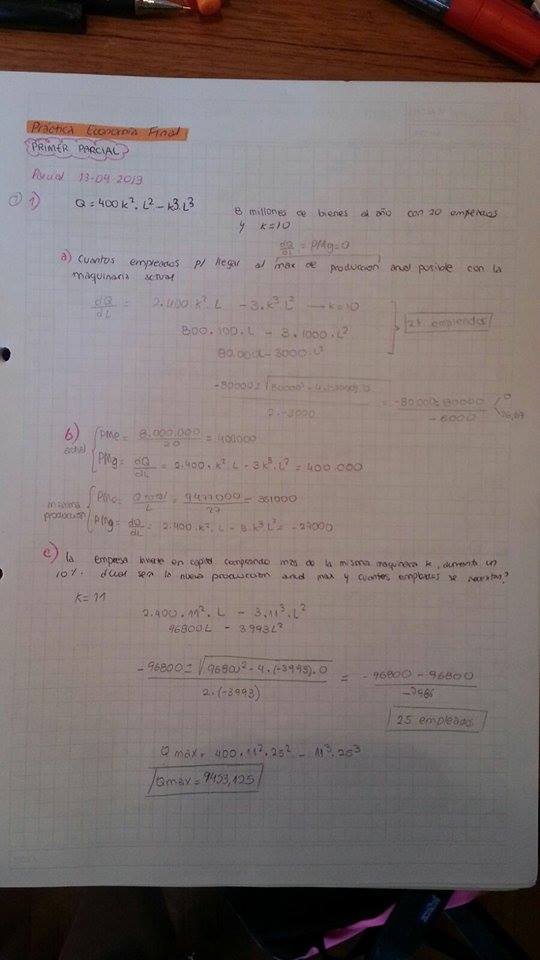 Práctica Economía Final
PRIMER PARCIAL
Parcial 13-09-2019
1) Q = 400 k². L² - k³. L³
8 millones de bienes al año con 20 empleados
y k=10
dQ/dL = PMg=0
a) Cuantos empleados p/ llegar al max de produccion anual posible con la
maquinaria actual
dQ/dL = 2.400.k².L - 3.k³.L² → k=10
800.100.L - 3.1000.L²
80.000L - 3000.L²
27 empleados
-80000 ± √80000² - 4.(-3000).0 / 2.-3000 = -80.000 ± 80000 / -6000 < 0
26,67
b) actual PMe = 8.000.000/20 = 400000
PMg = dQ/dL = 2.400.k².L - 3k³.L² = 400.000
maxima produccion PMe = Qtotal/L = 9477000/27 = 351000
PMg = dQ/dL = 2.400.k².L - 3.k³L² = -27000
c) La empresa invierte en capital comprando mas de la misma maquinaria k, aumenta un
10%. ¿Cual sera la nueva produccion anual max y cuantos empleados se necesitan?
K=11
2.400.11².L - 3.11³.L²
96800L - 3993L²
-96800 ± √96800² - 4.(-3993).0 / 2.(-3993) = -96800 - 96800 / -7986
25 empleados
Qmax = 400.11².25² - 11³.25³
Qmax = 9453,125